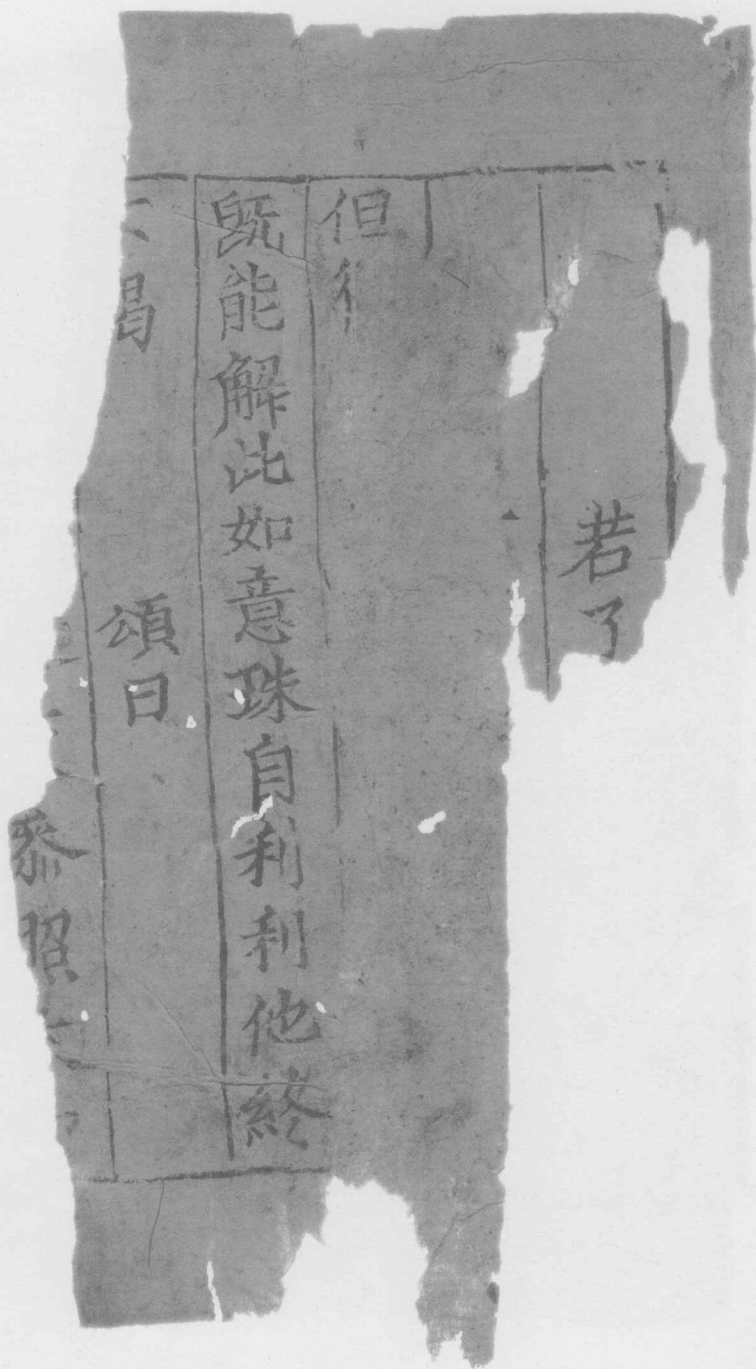 若了
但
既能解此如意珠自利利他終
竭
頌曰
照